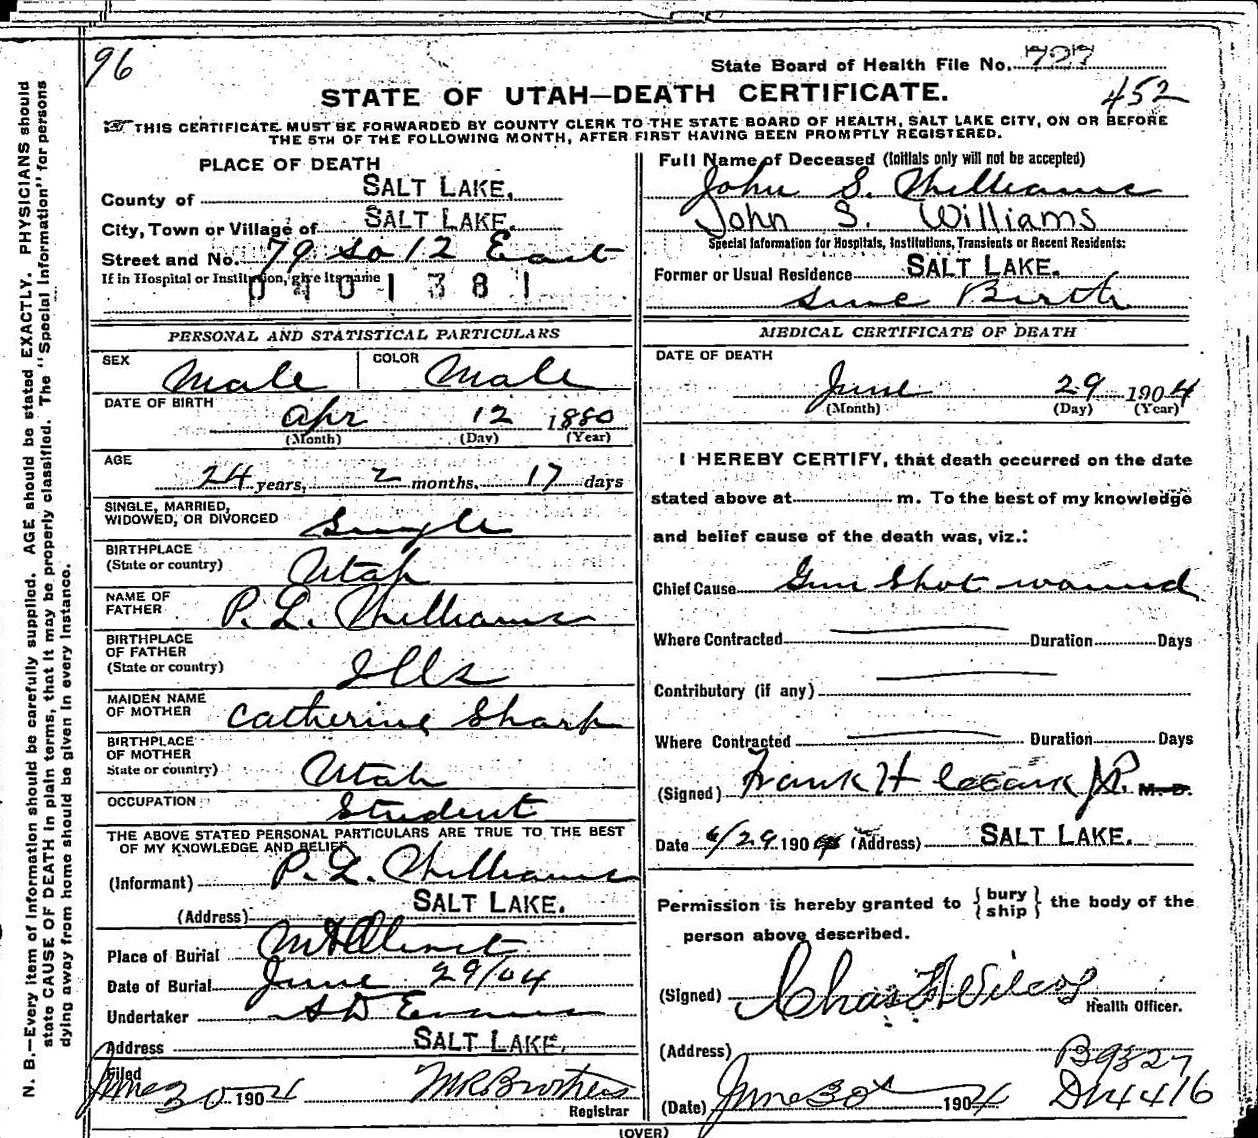 96
State Board of Health File No. 727
STATE OF UTAH—DEATH CERTIFICATE.
452
THIS CERTIFICATE MUST BE FORWARDED BY COUNTY CLERK TO THE STATE BOARD OF HEALTH, SALT LAKE CITY, ON OR BEFORE
THE 5TH OF THE FOLLOWING MONTH, AFTER FIRST HAVING BEEN PROMPTLY REGISTERED.
N. B.—Every item of Information should be carefully supplied. AGE should be stated EXACTLY. PHYSICIANS should
state CAUSE OF DEATH in plain terms, that it may be properly classified. The "Special Information" for persons
dying away from home should be given in every instance.
PLACE OF DEATH
County of SALT LAKE.
City, Town or Village of SALT LAKE.
Street and No. 79 So 12 East
If in Hospital or Institution, give its name
0101381
PERSONAL AND STATISTICAL PARTICULARS
SEX Male COLOR Male
DATE OF BIRTH
Apr 12 1880
(Month) (Day) (Year)
AGE
24 years, 2 months, 17 days
SINGLE, MARRIED,
WIDOWED, OR DIVORCED Single
BIRTHPLACE
(State or country) Utah
NAME OF
FATHER P. L. Williams
BIRTHPLACE
OF FATHER
(State or country) Ills
MAIDEN NAME
OF MOTHER Catherine Sharp
BIRTHPLACE
OF MOTHER
State or country) Utah
OCCUPATION Student
THE ABOVE STATED PERSONAL PARTICULARS ARE TRUE TO THE BEST
OF MY KNOWLEDGE AND BELIEF
(Informant) P. L. Williams
(Address) SALT LAKE.
Place of Burial Mt Olivet
Date of Burial June 29/04
Undertaker S D Evans
Address SALT LAKE.
Filed
June 30 1904
Registrar
Full Name of Deceased (Initials only will not be accepted)
John S. Williams
John S. Williams
Special Information for Hospitals, Institutions, Transients or Recent Residents:
Former or Usual Residence SALT LAKE.
since Birth
MEDICAL CERTIFICATE OF DEATH
DATE OF DEATH
June 29 1904
(Month) (Day) (Year)
I HEREBY CERTIFY, that death occurred on the date
stated above at m. To the best of my knowledge
and belief cause of the death was, viz.:
Chief Cause Gun Shot wound
Where Contracted Duration Days
Contributory (if any)
Where Contracted Duration Days
(Signed) Frank H J.P. M. D.
Date 6/29 1904 (Address) SALT LAKE.
Permission is hereby granted to {bury
ship} the body of the
person above described.
(Signed) Chas F Wilcox
Health Officer.
(Address)
B9327
(Date) June 30 1904
D4416
(OVER)